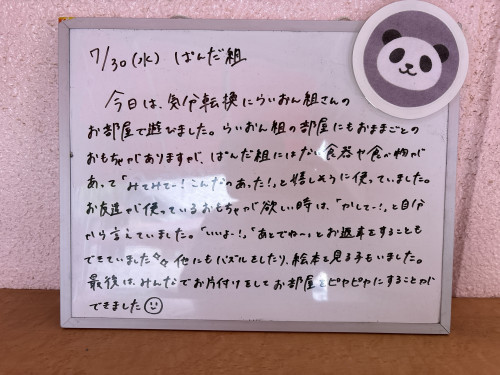 7/30(水) ぱんだ組
今日は、気分転換にらいおん組さんの
お部屋で遊びました。らいおん組の部屋にもおままごとの
おもちゃがありますが、ぱんだ組にはない食器や食べ物が
あって「みてみてー!こんなのあった!」と嬉しそうに使っていました。
お友達が使っているおもちゃが欲しい時は、「かしてー!」と自分
から言えていました。「いいよー!」「あとでねー」とお返事をすることも
できていました✨ 他にもパズルをしたり、絵本を見る子もいました。
最後は、みんなでお片付けをしてお部屋をピカピカにすることが
できました☺